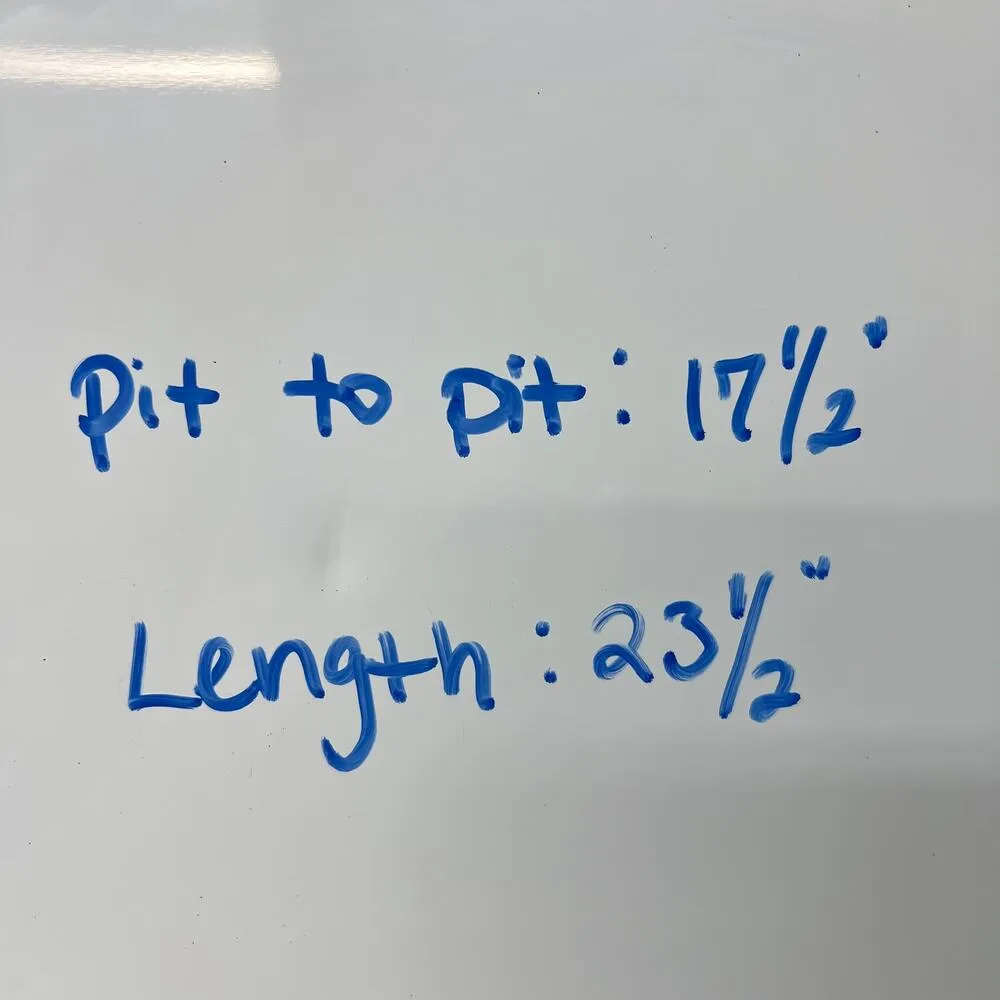 Pit to pit: 17 1/2"
Length: 23 1/2"